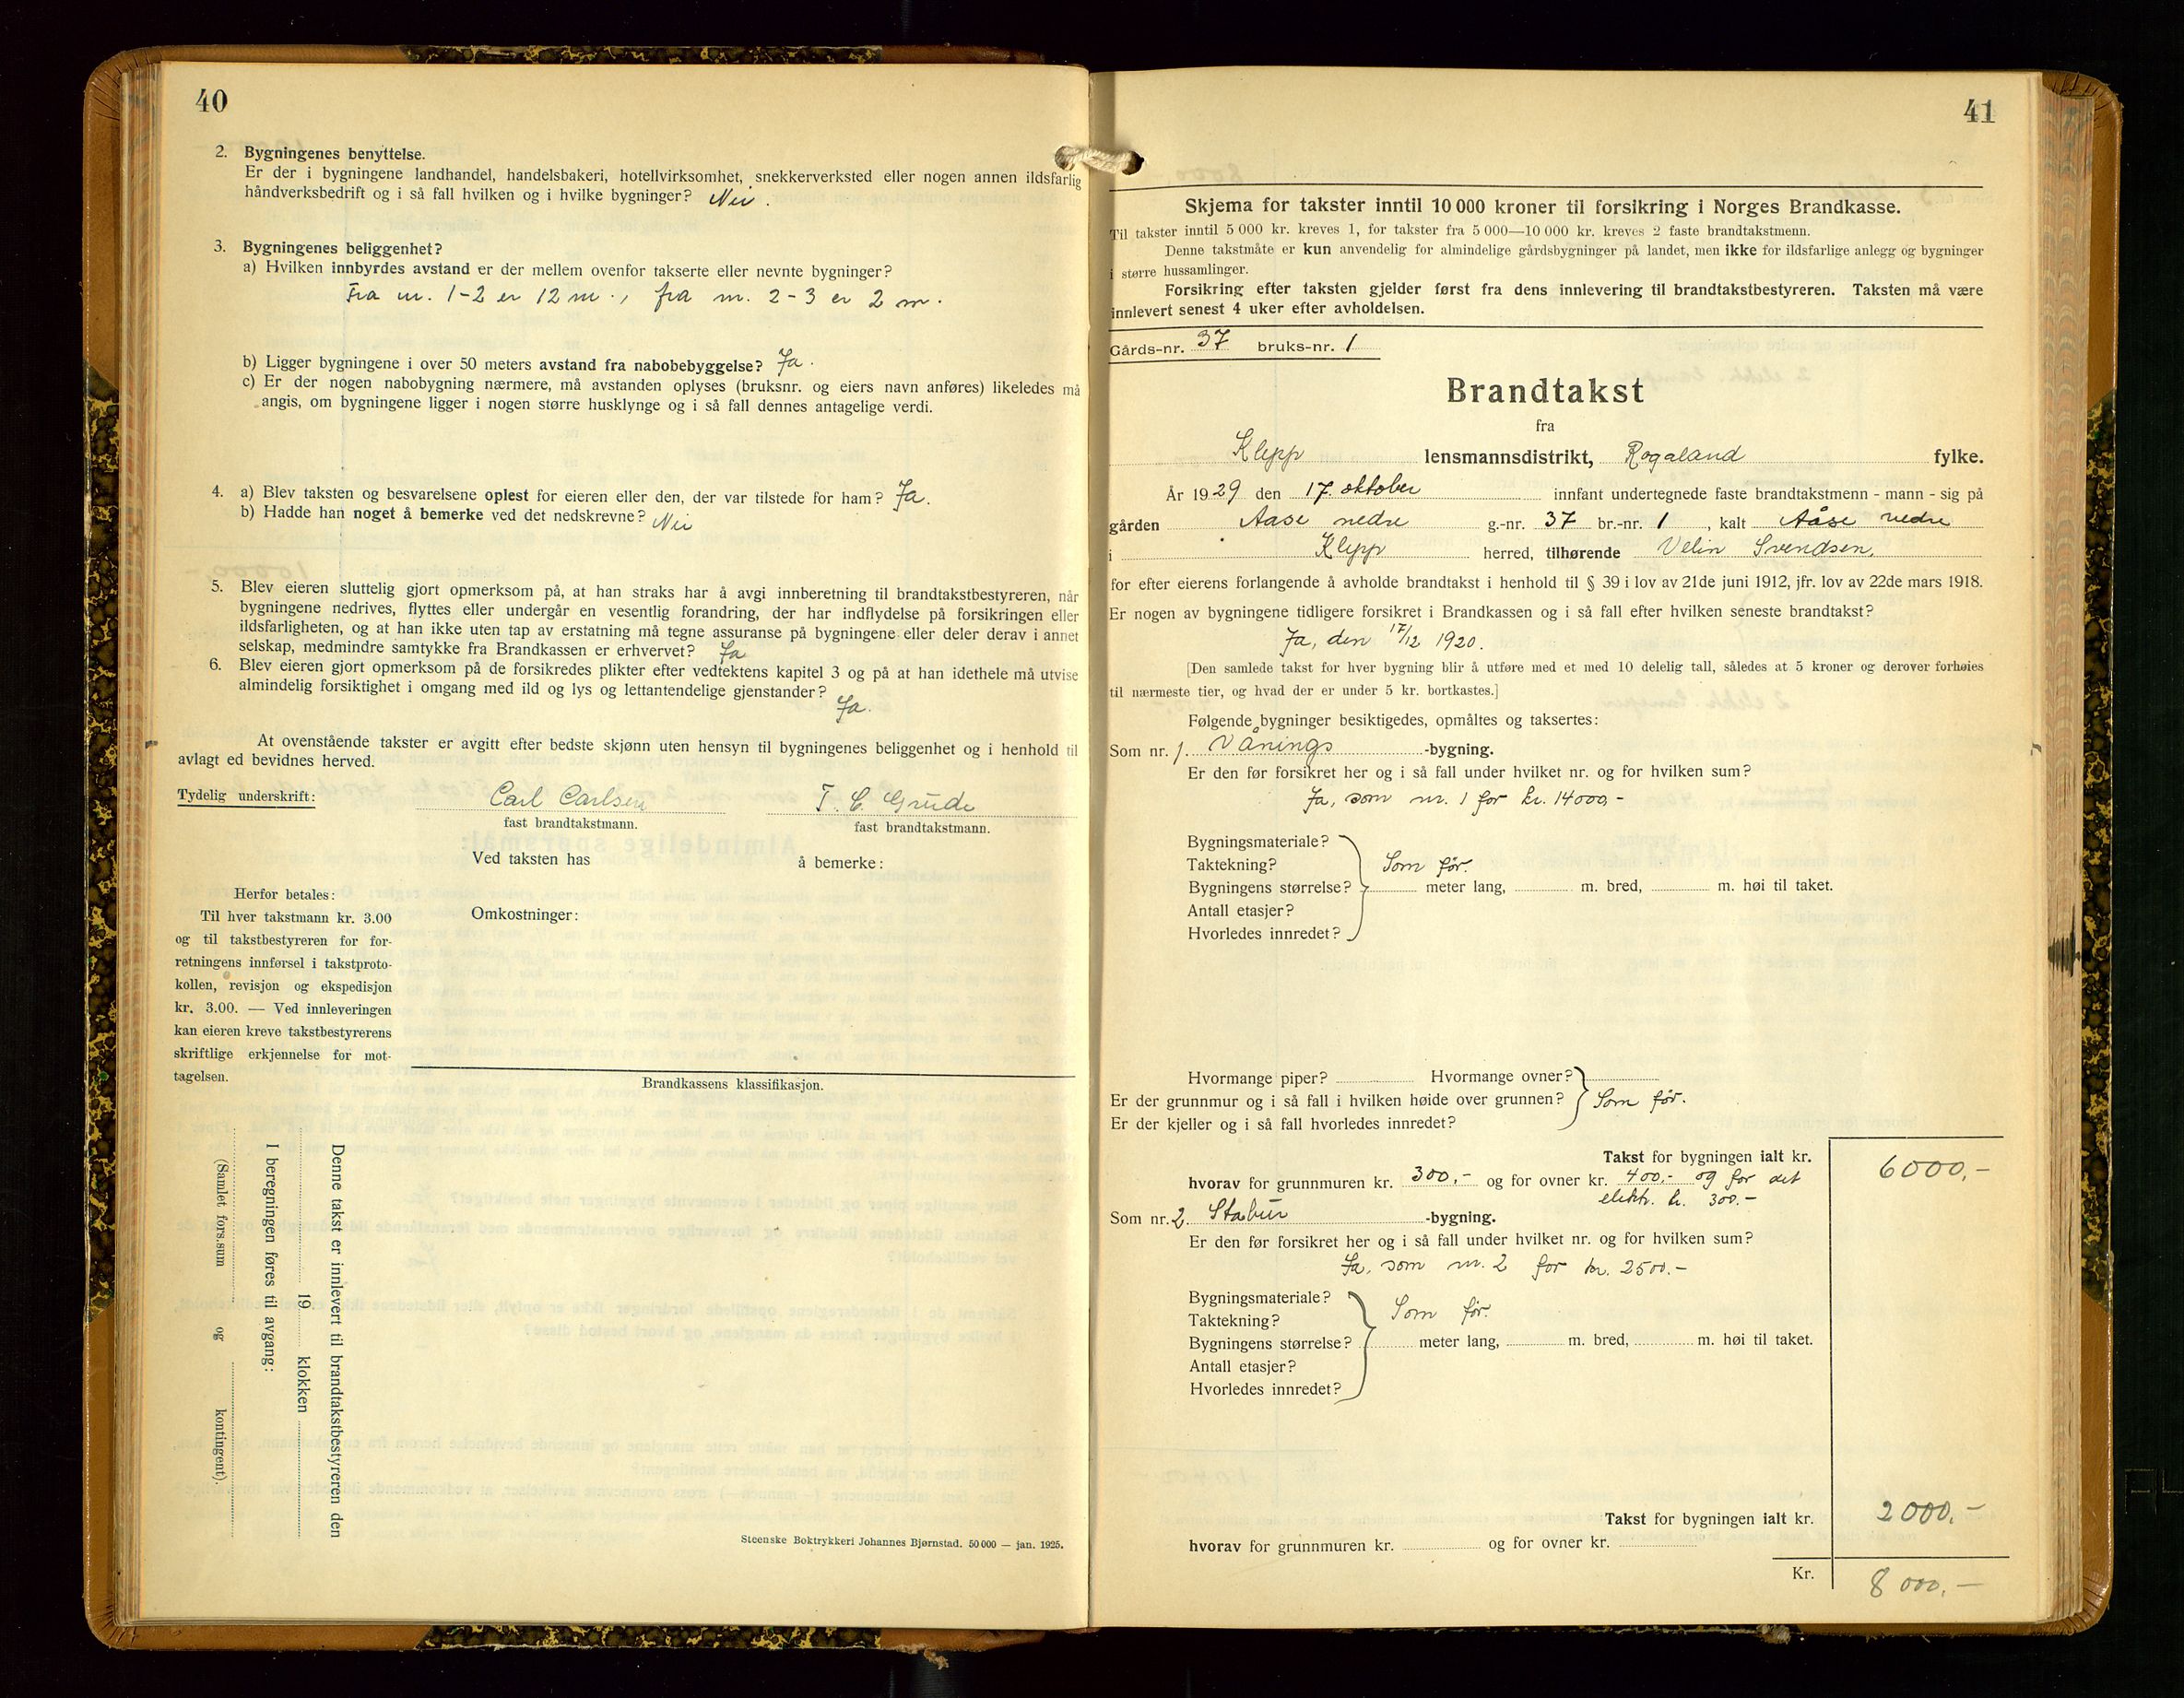 40
2. Bygningenes benyttelse.
Er der i bygningene landhandel, handelsbakeri, hotellvirksomhet, snekkerverksted eller nogen annen ildsfarlig
håndverksbedrift og i så fall hvilken og i hvilke bygninger? Nei.
3. Bygningenes beliggenhet?
a) Hvilken innbyrdes avstand er der mellem ovenfor takserte eller nevnte bygninger?
Fra nr. 1-2 er 12 m., fra nr. 2-3 er 2 m.
b) Ligger bygningene i over 50 meters avstand fra nabobebyggelse? Ja.
c) Er der nogen nabobygning nærmere, må avstanden oplyses (bruksnr. og eiers navn anføres) likeledes må
angis, om bygningene ligger i nogen større husklynge og i så fall dennes antagelige verdi.
4. a) Blev taksten og besvarelsene oplest for eieren eller den, der var tilstede for ham? Ja.
b) Hadde han noget å bemerke ved det nedskrevne? Nei
5. Blev eieren sluttelig gjort opmerksom på, at han straks har å avgi innberetning til brandtakstbestyreren, når
bygningene nedrives, flyttes eller undergår en vesentlig forandring, der har indflydelse på forsikringen eller
ildsfarligheten, og at han ikke uten tap av erstatning må tegne assuranse på bygningene eller deler derav i annet
selskap, medmindre samtykke fra Brandkassen er erhvervet? Ja
6. Blev eieren gjort opmerksom på de forsikredes plikter efter vedtektens kapitel 3 og på at han idethele må utvise
almindelig forsiktighet i omgang med ild og lys og lettantendelige gjenstander? Ja.
At ovenstående takster er avgitt efter bedste skjønn uten hensyn til bygningenes beliggenhet og i henhold til
avlagt ed bevidnes herved.
Tydelig underskrift: Carl Carlsen T. C. Grude
fast brandtakstmann. fast brandtakstmann.
Ved taksten has å bemerke:
Herfor betales:
Til hver takstmann kr. 3.00
og til takstbestyreren for for-
retningens innførsel i takstproto-
kollen, revisjon og ekspedisjon
kr. 3.00. — Ved innleveringen
kan eieren kreve takstbestyrerens
skriftlige erkjennelse for mot-
tagelsen.
Omkostninger:
Brandkassens klassifikasjon.
Denne takst er innlevert til brandtakstbestyreren den
19 klokken
I beregningen føres til avgang:
(Samlet fors.sum og kontingent).
Steenske Boktrykkeri Johannes Bjørnstad. 50 000 — jan. 1925.
41
Skjema for takster inntil 10 000 kroner til forsikring i Norges Brandkasse.
Til takster inntil 5 000 kr. kreves 1, for takster fra 5 000—10 000 kr. kreves 2 faste brandtakstmenn.
Denne takstmåte er kun anvendelig for almindelige gårdsbygninger på landet, men ikke for ildsfarlige anlegg og bygninger
i større hussamlinger.
Forsikring efter taksten gjelder først fra dens innlevering til brandtakstbestyreren. Taksten må være
innlevert senest 4 uker efter avholdelsen.
Gårds-nr. 37 bruks-nr. 1
Brandtakst
fra
Klepp lensmannsdistrikt, Rogaland fylke.
År 1929 den 17. oktober innfant undertegnede faste brandtakstmenn - mann - sig på
gården Aase nedre g.-nr. 37 br.-nr. 1, kalt Aåse nedre
i Klepp herred, tilhørende Velin Svendsen,
for efter eierens forlangende å avholde brandtakst i henhold til § 39 i lov av 21de juni 1912, jfr. lov av 22de mars 1918.
Er nogen av bygningene tidligere forsikret i Brandkassen og i så fall efter hvilken seneste brandtakst?
Ja, den 17/12 1920.
[Den samlede takst for hver bygning blir å utføre med et med 10 delelig tall, således at 5 kroner og derover forhøies
til nærmeste tier, og hvad der er under 5 kr. bortkastes.]
Følgende bygninger besiktigedes, opmåltes og taksertes:
Som nr. 1. Vånings-bygning.
Er den før forsikret her og i så fall under hvilket nr. og for hvilken sum?
Ja, som nr. 1 for kr. 14000,-
Bygningsmateriale?
Taktekning? Som før.
Bygningens størrelse? meter lang, m. bred, m. høi til taket.
Antall etasjer?
Hvorledes innredet?
Hvormange piper? Hvormange ovner?
Er der grunnmur og i så fall i hvilken høide over grunnen? Som før.
Er der kjeller og i så fall hvorledes innredet?
Takst for bygningen ialt kr. 6000,-
hvorav for grunnmuren kr. 300,- og for ovner kr. 400,- og for det
elektr. kr. 300.-
Som nr. 2 Stabur-bygning.
Er den før forsikret her og i så fall under hvilket nr. og for hvilken sum?
Ja, som nr. 2 for kr. 2500.-
Bygningsmateriale?
Taktekning? Som før.
Bygningens størrelse? meter lang, m. bred, m. høi til taket.
Antall etasjer?
Hvorledes innredet?
Takst for bygningen ialt kr. 2000,-
hvorav for grunnmuren kr. og for ovner kr.
Kr. 8000,-